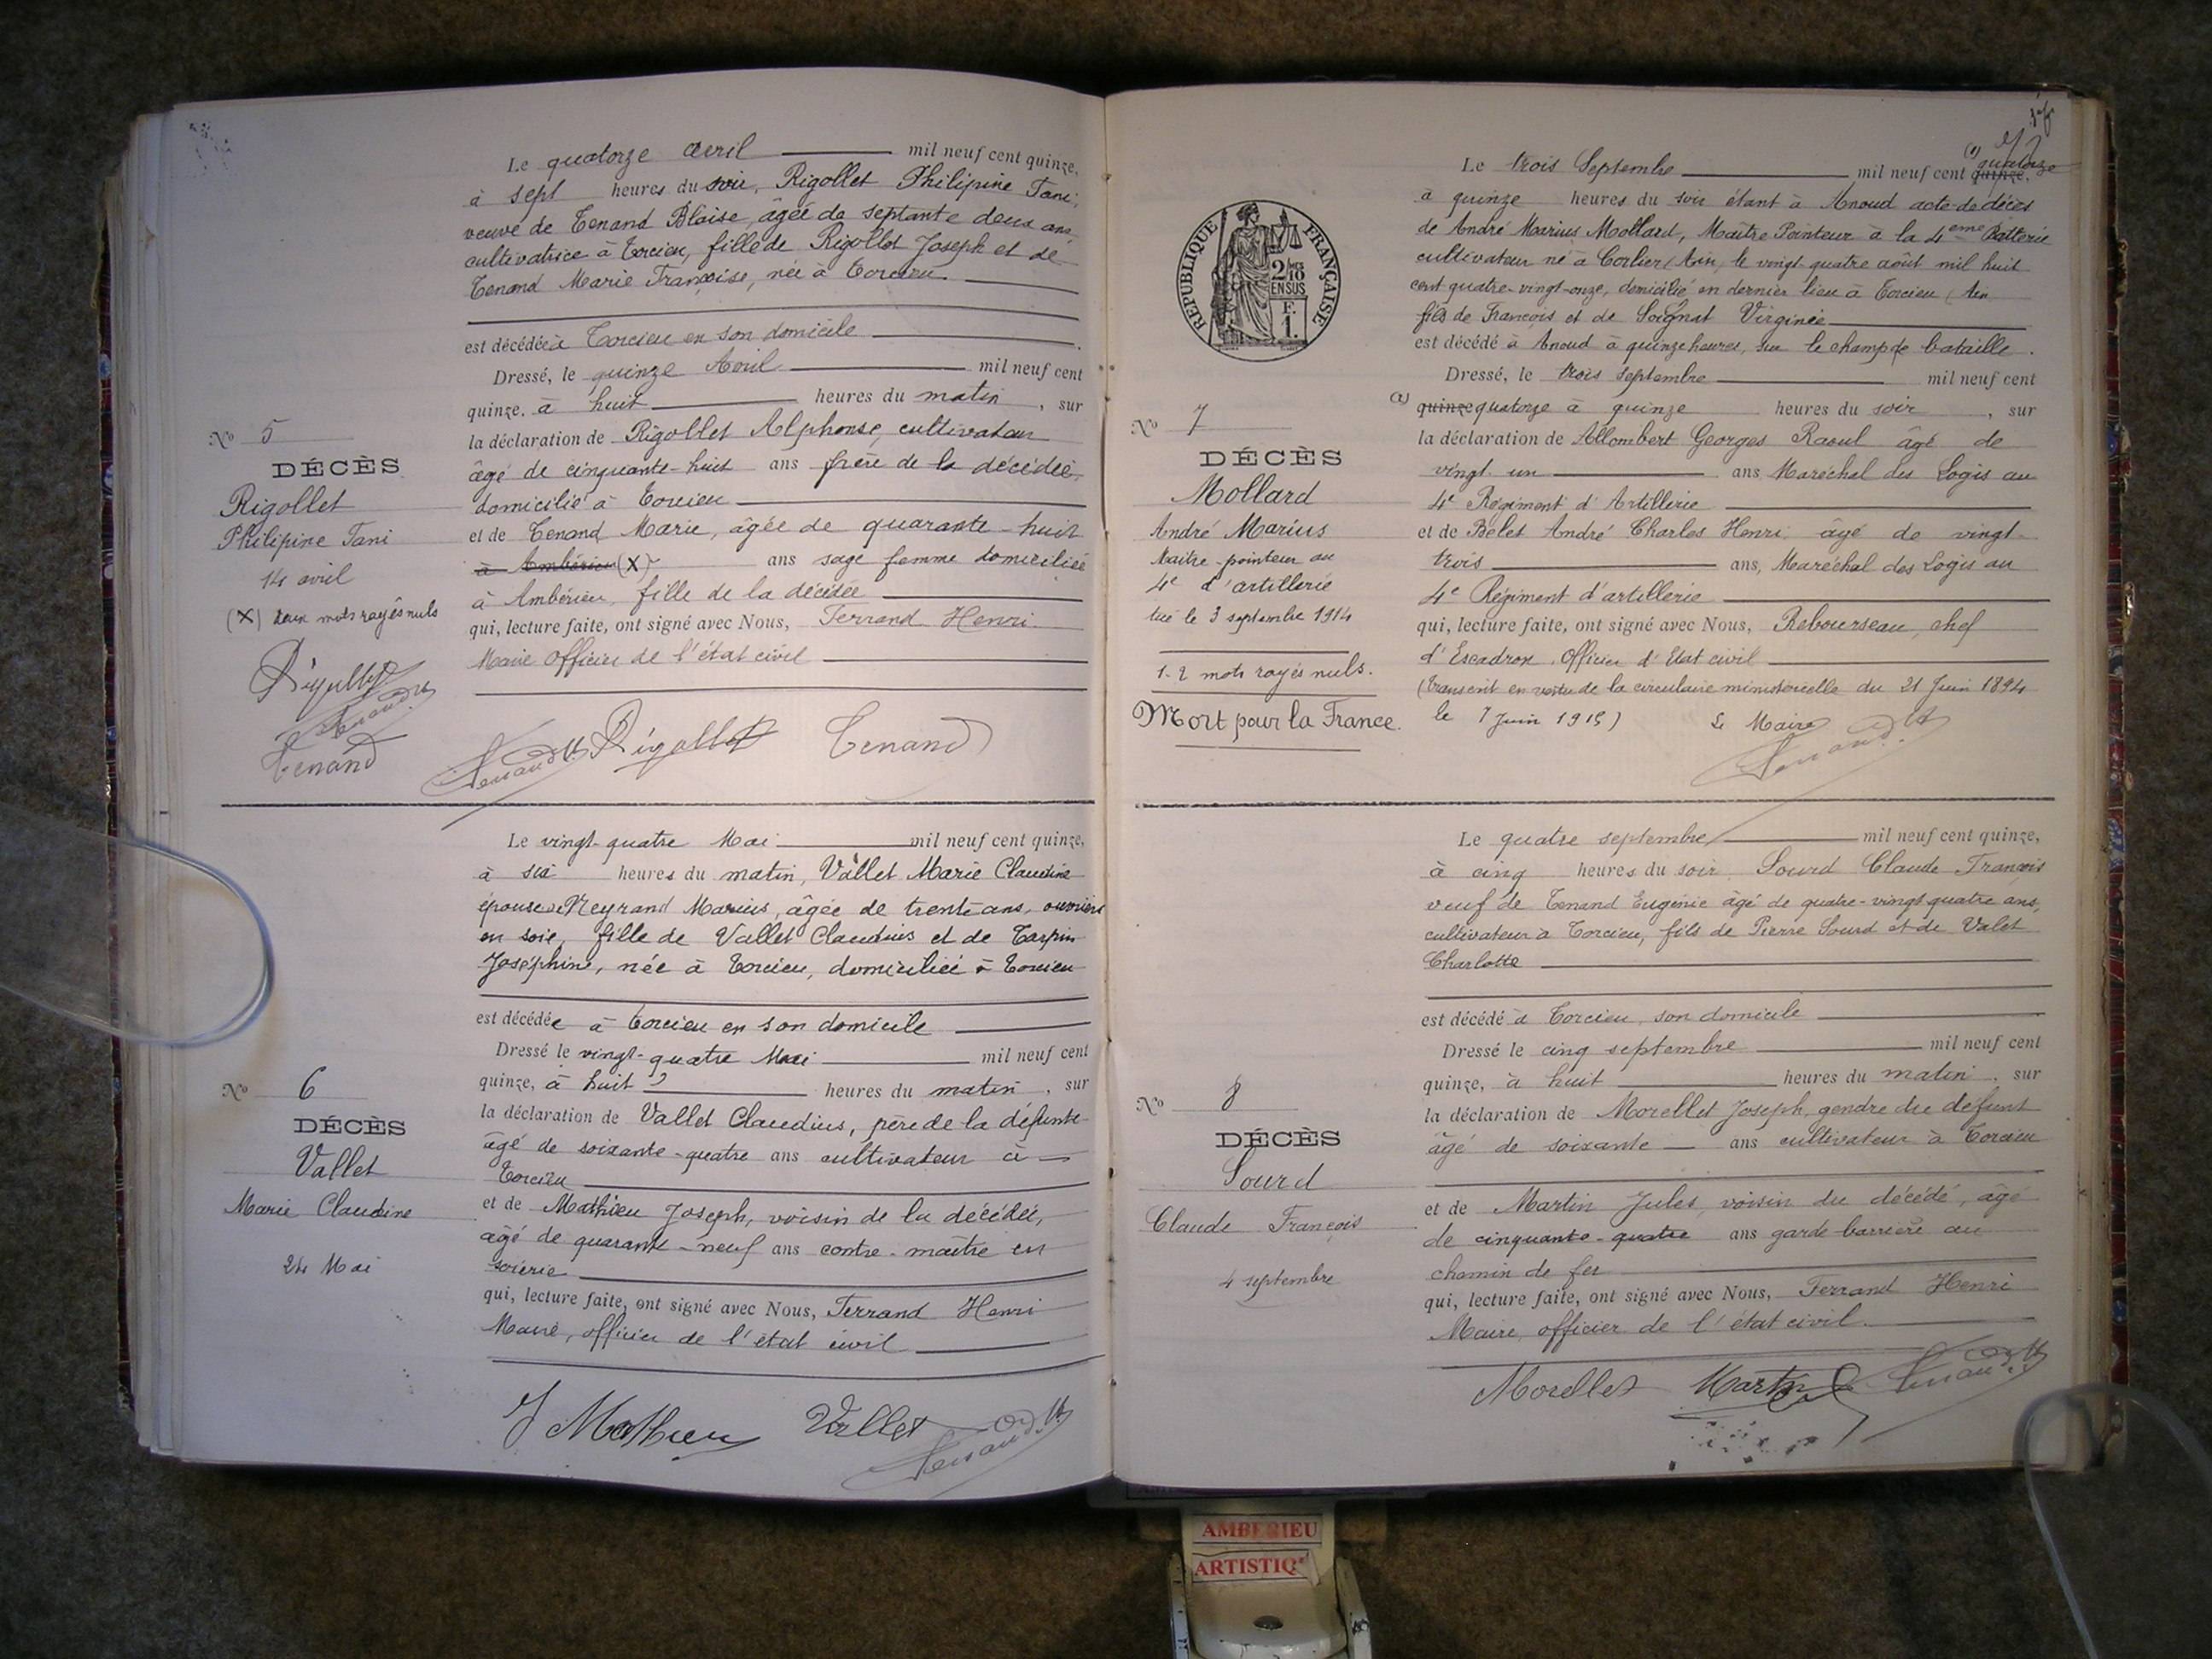 Le quatorze avril mil neuf cent quinze,
à sept heures du soir, Rigollet Philipine Fani,
veuve de Tenand Blaise, âgée de septante deux ans
cultivatrice à Torcieu, fille de Rigollet Joseph et de
Tenand Marie Françoise, née à Torcieu
est décédée à Torcieu en son domicile
Dressé, le quinze Avril mil neuf cent
quinze, à huit heures du matin, sur
la déclaration de Rigollet Alphonse, cultivateur
âgé de cinquante-huit ans frère de la décédée,
domicilié à Torcieu
et de Tenand Marie, âgée de quarante-huit
à Ambérieu (X) ans sage femme domiciliée
à Ambérieu, fille de la décédée
qui, lecture faite, ont signé avec Nous, Ferrand Henri
Maire officier de l'état civil
Ferrand H Rigollet Tenand
No 5
DÉCÈS
Rigollet
Philipine Fani
14 avril
(X) deux mots rayés nuls
Rigollet
Ferrand H
Tenand
Le vingt-quatre Mai mil neuf cent quinze,
à six heures du matin, Vallet Marie Claudine
épouse de Neyrand Marius, âgée de trente ans, ouvrière
en soie, fille de Vallet Claudius et de Tarpin
Joséphine, née à Torcieu, domiciliée à Torcieu
est décédée à Torcieu en son domicile
Dressé le vingt-quatre Mai mil neuf cent
quinze, à huit heures du matin, sur
la déclaration de Vallet Claudius, père de la défunte
âgé de soixante-quatre ans cultivateur à
Torcieu
et de Mathieu Joseph, voisin de la décédée,
âgé de quarante-neuf ans contre-maître en
soierie
qui, lecture faite, ont signé avec Nous, Ferrand Henri
Maire, officier de l'état civil
J Mathieu Vallet Ferrand H
No 6
DÉCÈS
Vallet
Marie Claudine
24 Mai
Le trois Septembre mil neuf cent quinze. (1) quatorze
à quinze heures du soir étant à Anoud acte de décès
de André Marius Mollard, Maître Pointeur à la 4eme Batterie
cultivateur né à Corlier (Ain, le vingt-quatre août mil huit
cent quatre-vingt-onze, domicilié en dernier lieu à Torcieu (Ain
fils de François et de Soignat Virginie
est décédé à Anoud à quinze heures, sur le champ de bataille.
Dressé, le trois septembre mil neuf cent
quinze quatorze à quinze heures du soir, sur
la déclaration de Allombert Georges Raoul âgé de
vingt un ans Maréchal des Logis au
4e Régiment d'Artillerie
et de Belet André Charles Henri, âgé de vingt-
trois ans, Maréchal des Logis au
4e Régiment d'artillerie
qui, lecture faite, ont signé avec Nous, Rebourseau, chef
d'Escadron, Officier d'Etat civil
(transcrit en vertu de la circulaire ministérielle du 21 Juin 1894
le 7 Juin 1915) Le Maire
Ferrand H
RÉPUBLIQUE FRANÇAISE
2/10
EN SUS
F.
1.
No 7
DÉCÈS
Mollard
André Marius
Maître-pointeur au
4e d'artillerie
tué le 3 septembre 1914
1-2 mots rayés nuls.
Mort pour la France.
Le quatre septembre mil neuf cent quinze,
à cinq heures du soir, Sourd Claude François
veuf de Tenand Eugénie âgé de quatre-vingt quatre ans,
cultivateur à Torcieu, fils de Pierre Sourd et de Valet
Charlotte
est décédé à Torcieu, son domicile
Dressé le cinq septembre mil neuf cent
quinze, à huit heures du matin, sur
la déclaration de Morellet Joseph, gendre du défunt
âgé de soixante ans cultivateur à Torcieu
et de Martin Jules, voisin du décédé, âgé
de cinquante-quatre ans garde-barrière au
chemin de fer
qui, lecture faite, ont signé avec Nous, Ferrand Henri
Maire, officier de l'état civil.
Morellet Martin Ferrand H
No 8
DÉCÈS
Sourd
Claude François
4 septembre
AMBERIEU
ARTISTIQ